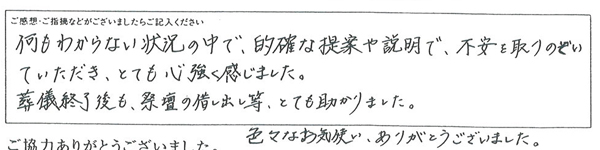 ご感想・ご指摘などがございましたらご記入ください
何もわからない状況の中で、的確な提案や説明で、不安を取りのぞい
ていただき、とても心強く感じました。
葬儀終了後も、祭壇の借し出し等、とても助かりました。
色々なお気使い、ありがとうございました。
ご協力ありがとうございました。